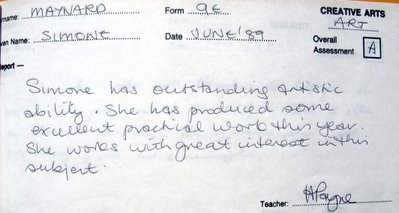 rname: MAYNARD Form 9E CREATIVE ARTS
ART
ven Name: SIMONE Date JUNE '89 Overall Assessment A
eport —
Simone has outstanding artistic
ability. She has produced some
excellent practical work this year.
She works with great interest in this
subject.
Teacher: HPayne